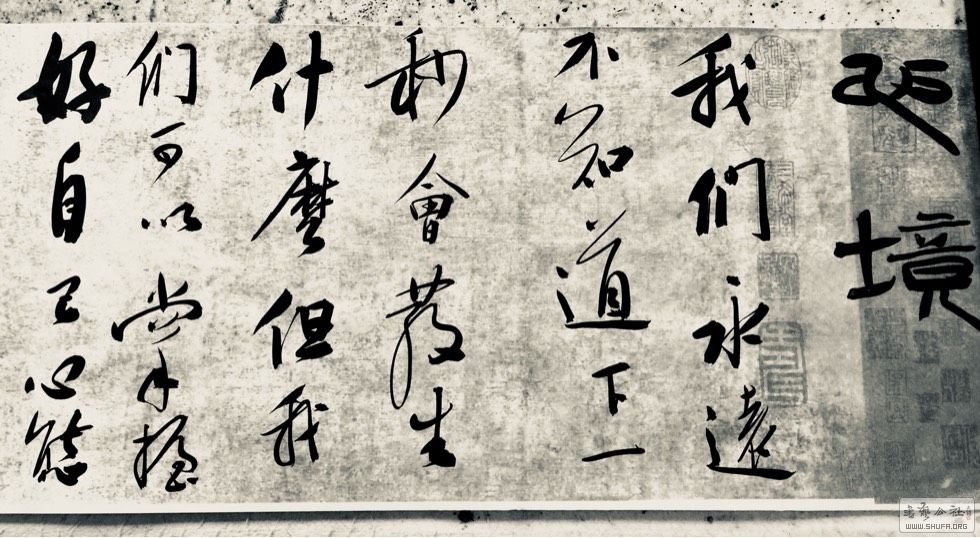 境
我們永遠
不知道下一
秒會發生
什麼但我
们可以掌握
好自己心態
WWW.SHUFA.ORG